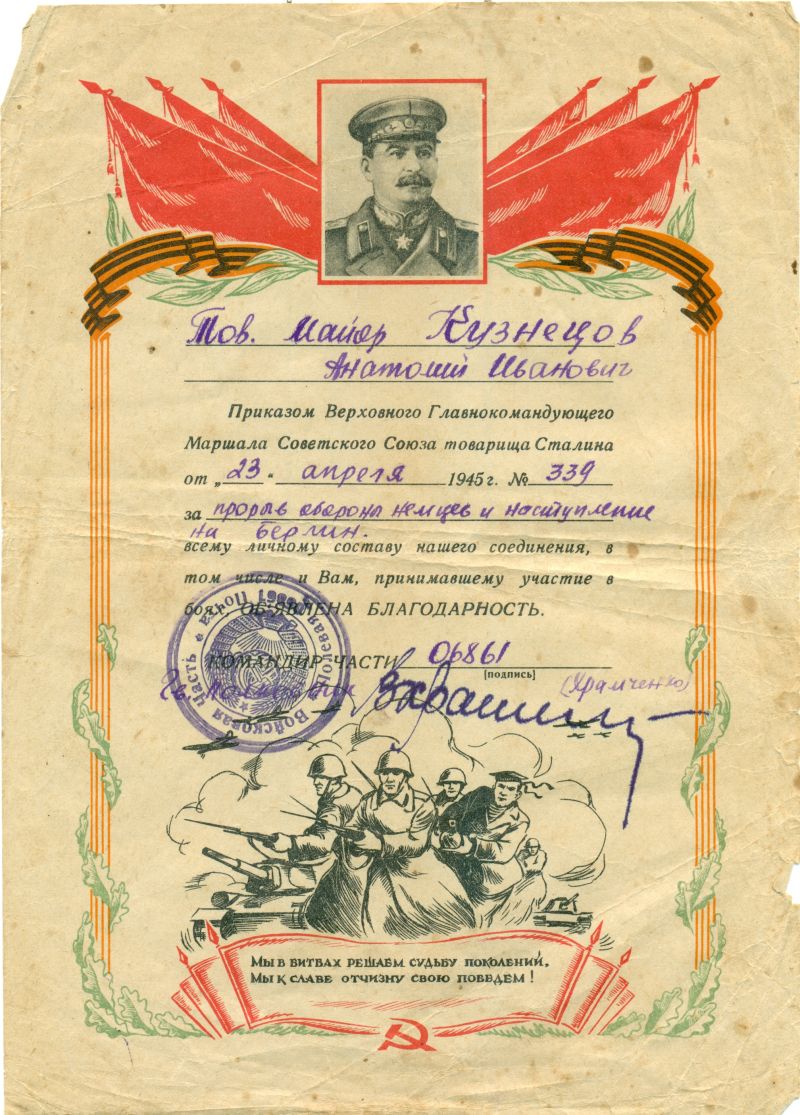 Тов. Майор Кузнецов
Анатолий Иванович
Приказом Верховного Главнокомандующего
Маршала Советского Союза товарища Сталина
от „23" апреля 1945 г. № 339
за прорыв обороны немцев и наступление
на Берлин.
всему личному составу нашего соединения, в
том числе и Вам, принимавшему участие в
боях, ОБ'ЯВЛЕНА БЛАГОДАРНОСТЬ.
КОМАНДИР ЧАСТИ 06861
(подпись)
Гв. (Храмченко)
Войсковая часть * Полевая Почта
МЫ В БИТВАХ РЕШАЕМ СУДЬБУ ПОКОЛЕНИЙ,
МЫ К СЛАВЕ ОТЧИЗНУ СВОЮ ПОВЕДЕМ!